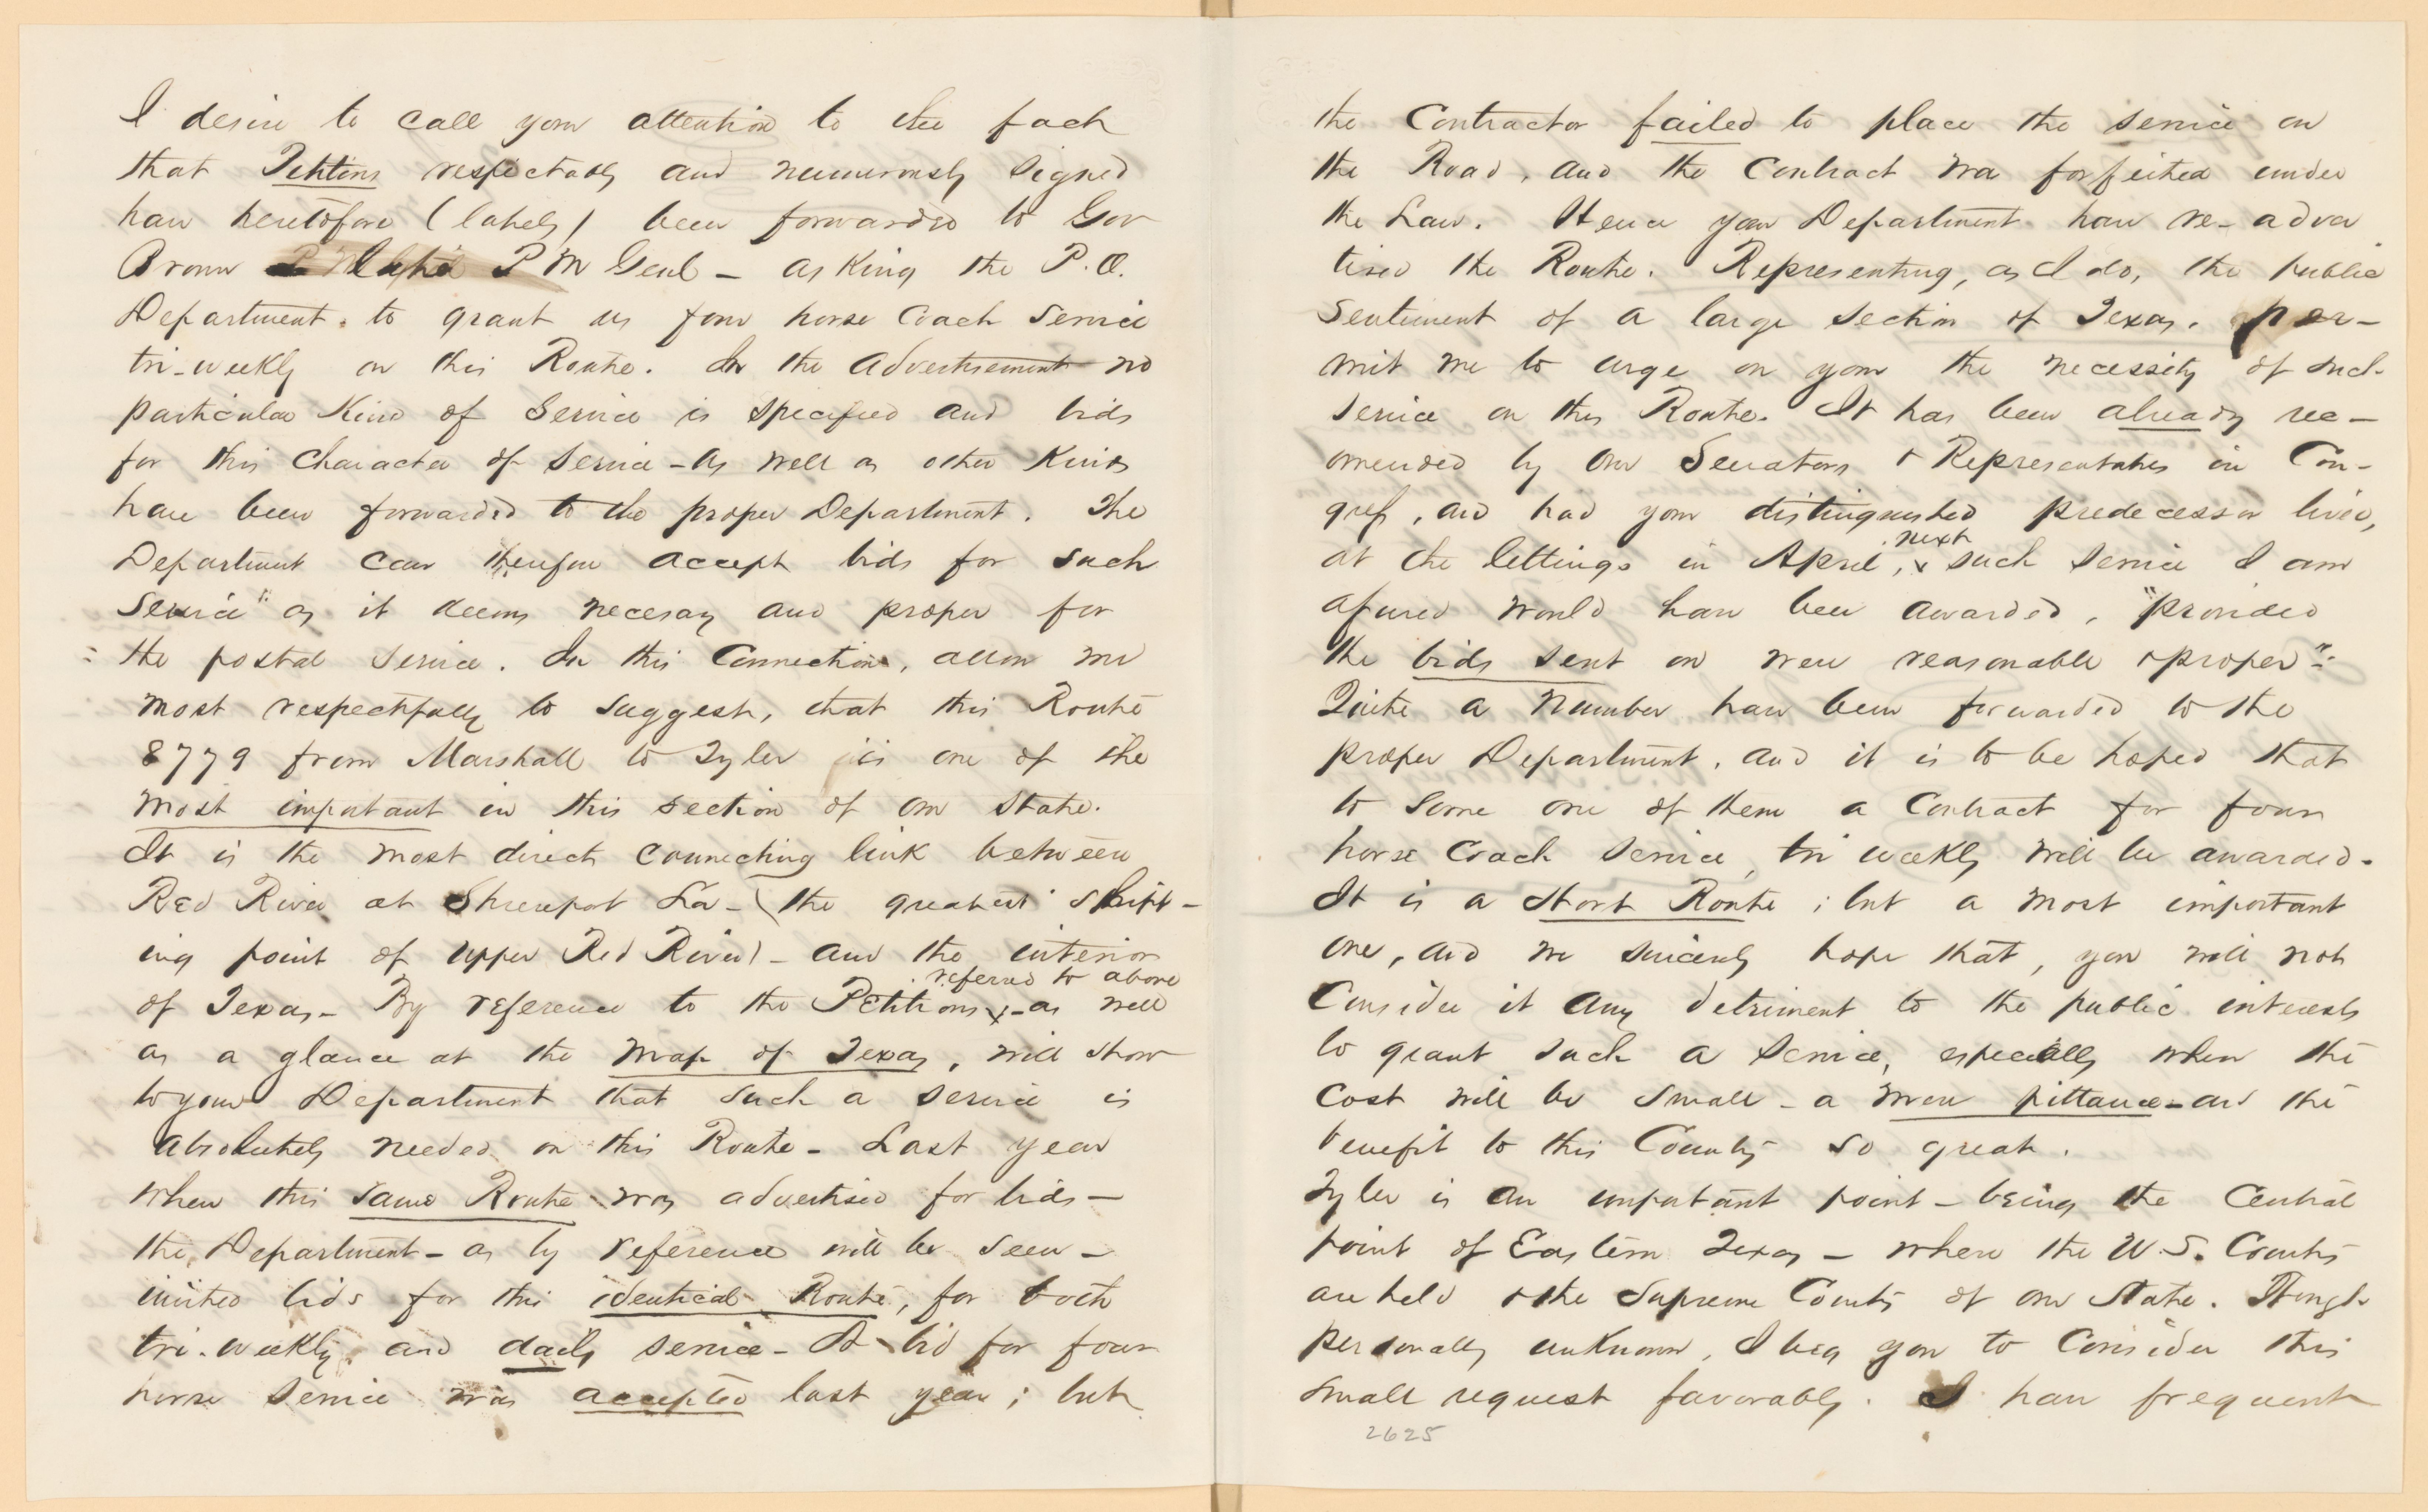 I desire to call your attention to the fact
that Petitions respectably and numerously signed
have heretofore (lately) been forwarded to Gov
Brown P M Genl - asking the P.O.
Department. to grant us four horse Coach Service
tri-weekly on this Route. In the advertisement no
particular Kind of Service is specified and bids
for this Character of Service - as well as other Kinds
have been forwarded to the proper Department. The
Department can therefore accept bids for such
Service" as it deems necesary and proper for
the postal service. In this Connection, allow me
most respectfully to suggest, that this Route
8779 from Marshall to Tyler is one of the
most important in this section of our State.
It is the most direct connecting link between
Red River at Shreveport La - (the greatest shipp-
ing point of upper Red River) - and the interior
of Texas - By reference to the Petitions referred to above - as well
as a glance at the map of Texas, will show
to your Department that such a service is
absolutely needed on this Route - Last year
when this same Route was advertised for bids -
the Department - as by reference will be seen -
invited bids for this identical Route, for both
tri-weekly and daily service - A bid for four
horse service was accepted last year; but
the Contractor failed to place the service on
the Road, and the Contract was forfeited under
the Law. Hence your Department have re-adver
tised the Route. Representing, as I do, the public
Sentiment of a large section of Texas, per-
mit me to urge on your the necessity of such
service on this Route. It has been already rec-
omended by our Senators & Representatives in Con-
gress, and had your distinguished predecessor lived,
at the lettings in April, next such service I am
assured would have been awarded, "provided
the bids sent on were reasonable & proper".
Quite a number have been forwarded to the
proper Department, and it is to be hoped that
to some one of them a Contract for four
horse Coach service, tri weekly will be awarded.
It is a short Route; but a most important
one, and we sincerely hope that, you will not
Consider it any detriment to the public interests
to grant such a service, especially when the
Cost will be small - a mere pittance - and the
benefit to this County so great.
Tyler is an important point - being the Central
point of Eastern Texas - where the U.S. Courts
are held & the Supreme Courts of our State. Though
personally unknown, I beg you to Consider this
small request favorably. I have frequent
2625